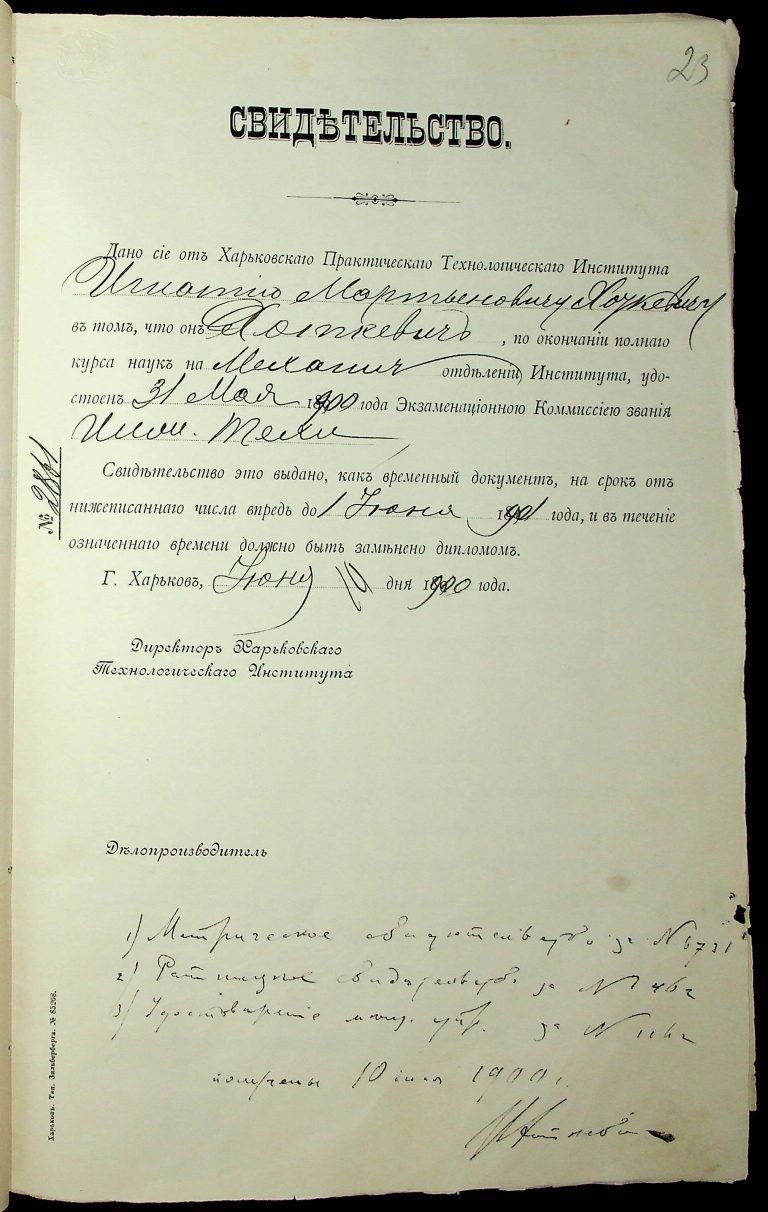 23
СВИДѢТЕЛЬСТВО.
Дано сіе отъ Харьковскаго Практическаго Технологическаго Института
Игнатію Мартыновичу Хоткевичу
въ томъ, что онъ Хоткевичъ, по окончаніи полнаго
курса наукъ на Механич отдѣленіи Института, удо-
стоенъ 31 Мая 1900 года Экзаменаціонною Коммиссіею званія
Инж. Техн
Свидѣтельство это выдано, какъ временный документъ, на срокъ отъ
нижеписаннаго числа впредь до 1 Іюня 1901 года, и въ теченіе
означеннаго времени должно быть замѣнено дипломомъ.
Г. Харьковъ, Іюня 10 дня 1900 года.
№ 2861
Директоръ Харьковскаго
Технологическаго Института
Дѣлопроизводитель
1) Метрическое свидѣтельство за №
2) свидѣтельство за №
3) Удостовѣреніе за №
получены 10 1900 г.
Харьковъ. Тип. Зильберберга. № 85208.